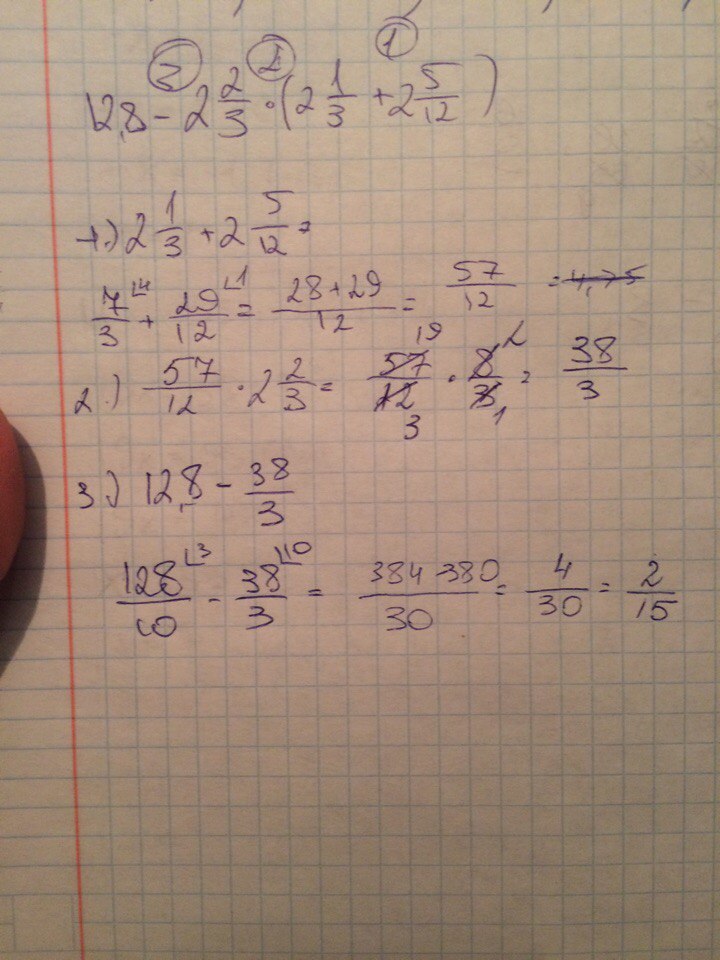 ③ ② ①
12,8 - 2 2/3 · (2 1/3 + 2 5/12)
1.) 2 1/3 + 2 5/12 =
7/3 ⌊4 + 29/12 ⌊1 = 28+29/12 = 57/12 = 4,75
2.) 57/12 · 2 2/3 = 57 19/12 3 · 8 2/3 1 = 38/3
3) 12,8 - 38/3
128/10 ⌊3 - 38/3 ⌊10 = 384-380/30 = 4/30 = 2/15